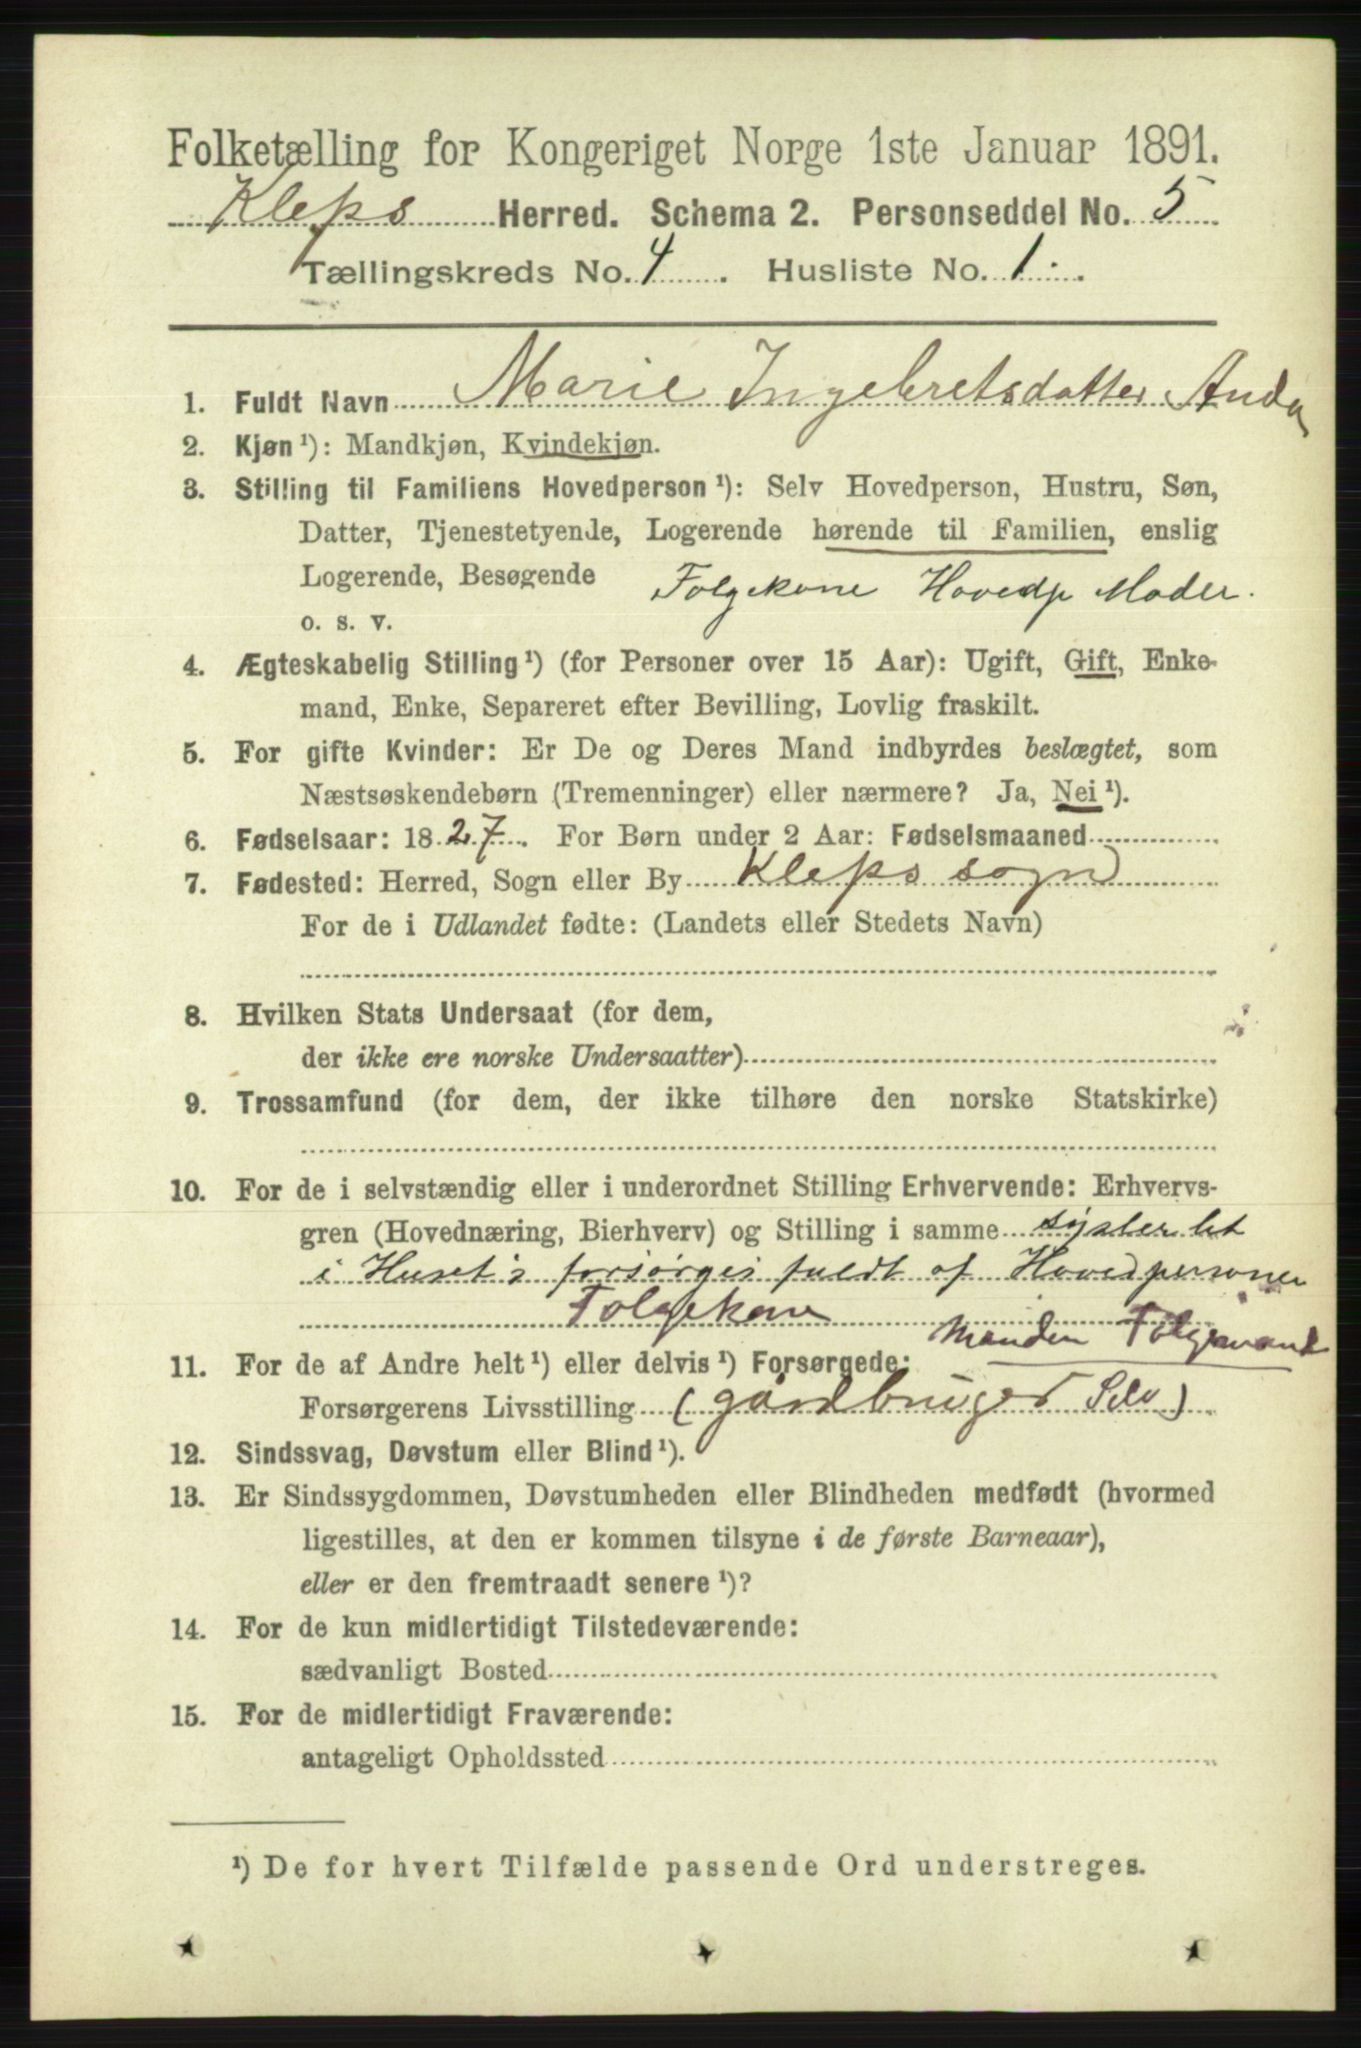 Folketælling for Kongeriget Norge 1ste Januar 1891.
Kleps Herred. Schema 2. Personseddel No. 5
Tællingskreds No. 4. Husliste No. 1.
1. Fuldt Navn Marie Ingebretsdatter Anda
2. Kjøn ¹): Mandkjøn, Kvindekjøn.
3. Stilling til Familiens Hovedperson ¹): Selv Hovedperson, Hustru, Søn,
Datter, Tjenestetyende, Logerende hørende til Familien, enslig
Logerende, Besøgende Folgekone Hovedp Moder.
o. s. v.
4. Ægteskabelig Stilling ¹) (for Personer over 15 Aar): Ugift, Gift, Enke-
mand, Enke, Separeret efter Bevilling, Lovlig fraskilt.
5. For gifte Kvinder: Er De og Deres Mand indbyrdes beslægtet, som
Næstsøskendebørn (Tremenninger) eller nærmere? Ja, Nei ¹).
6. Fødselsaar: 1827. For Børn under 2 Aar: Fødselsmaaned
7. Fødested: Herred, Sogn eller By Kleps sogn
For de i Udlandet fødte: (Landets eller Stedets Navn)
8. Hvilken Stats Undersaat (for dem,
der ikke ere norske Undersaatter)
9. Trossamfund (for dem, der ikke tilhøre den norske Statskirke)
10. For de i selvstændig eller i underordnet Stilling Erhvervende: Erhvervs-
gren (Hovednæring, Bierhverv) og Stilling i samme sysler let
i Huset; forsørges fuldt af Hovedpersonen
Folgekone Manden Folgemand
11. For de af Andre helt ¹) eller delvis ¹) Forsørgede:
Forsørgerens Livsstilling (gårdbruger Selv)
12. Sindssvag, Døvstum eller Blind ¹).
13. Er Sindssygdommen, Døvstumheden eller Blindheden medfødt (hvormed
ligestilles, at den er kommen tilsyne i de første Barneaar),
eller er den fremtraadt senere ¹)?
14. For de kun midlertidigt Tilstedeværende:
sædvanligt Bosted
15. For de midlertidigt Fraværende:
antageligt Opholdssted
¹) De for hvert Tilfælde passende Ord understreges.